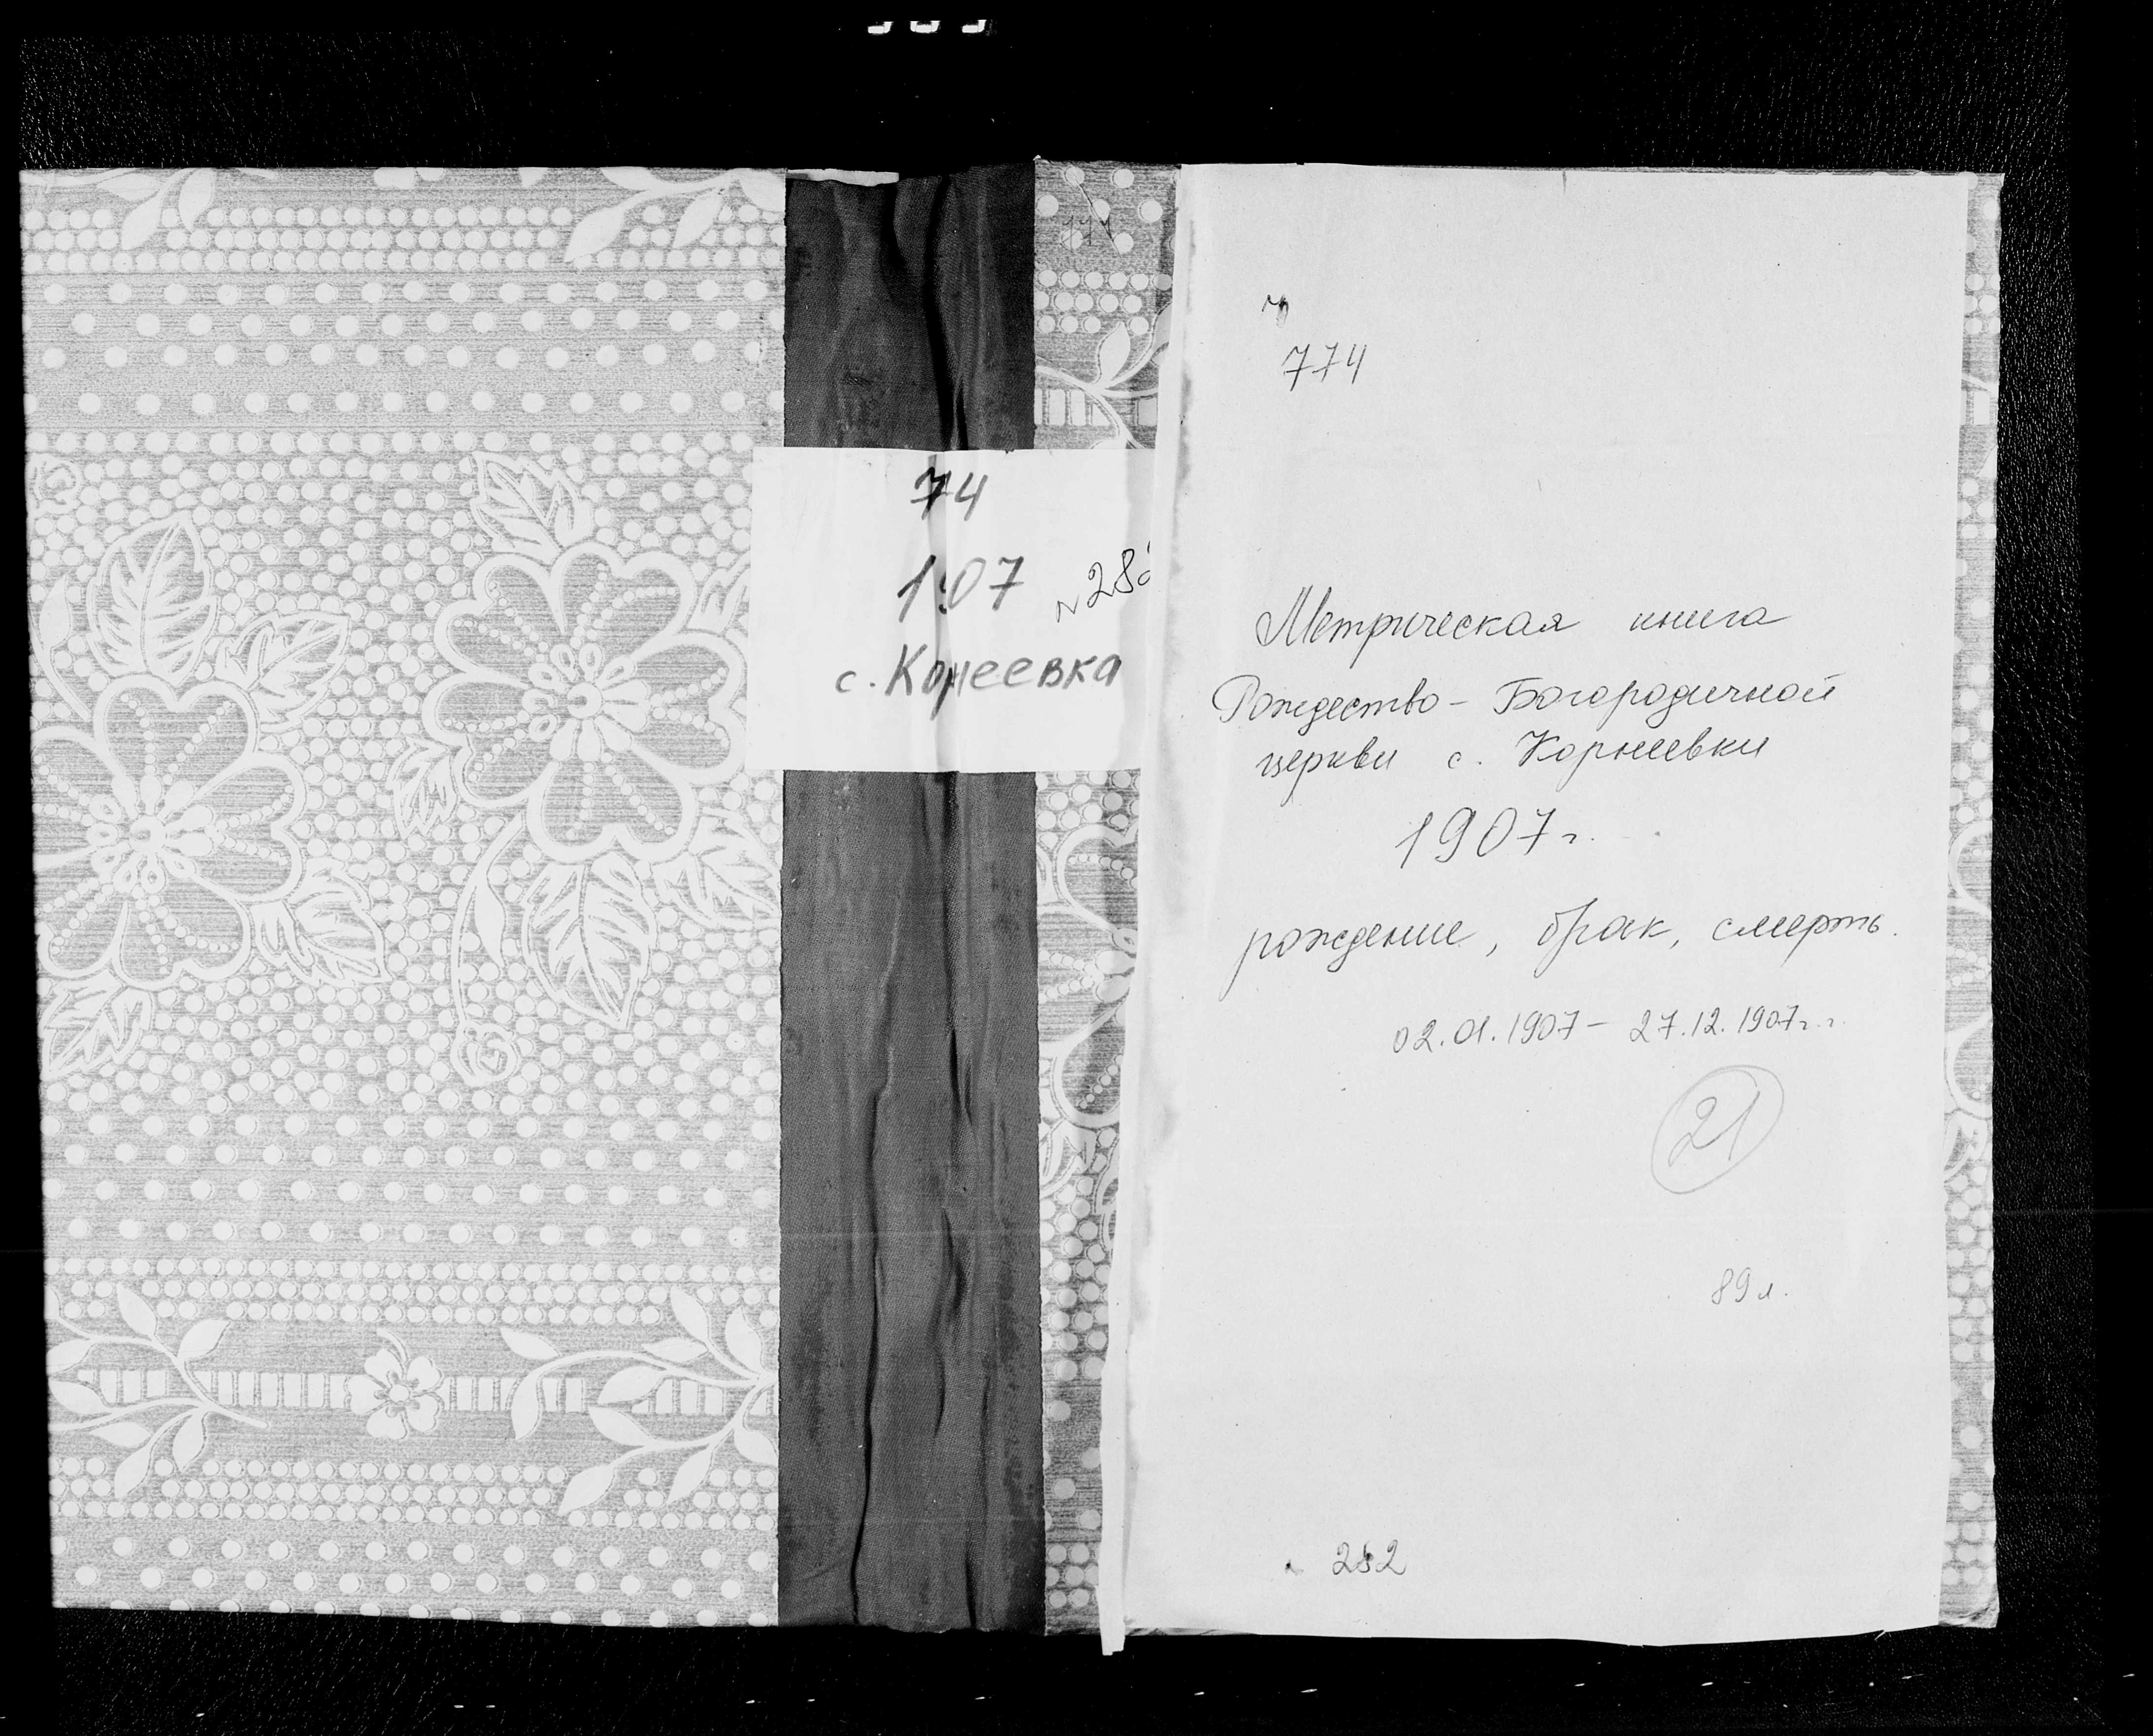 74
1907
с. Корнеевка
774
Метрическая книга
Рождество - Богородичной
церкви с. Корнеевки
1907 г.
рождение, брак, смерть.
02.01.1907 - 27.12.1907 г.г.
21
89 л.
282